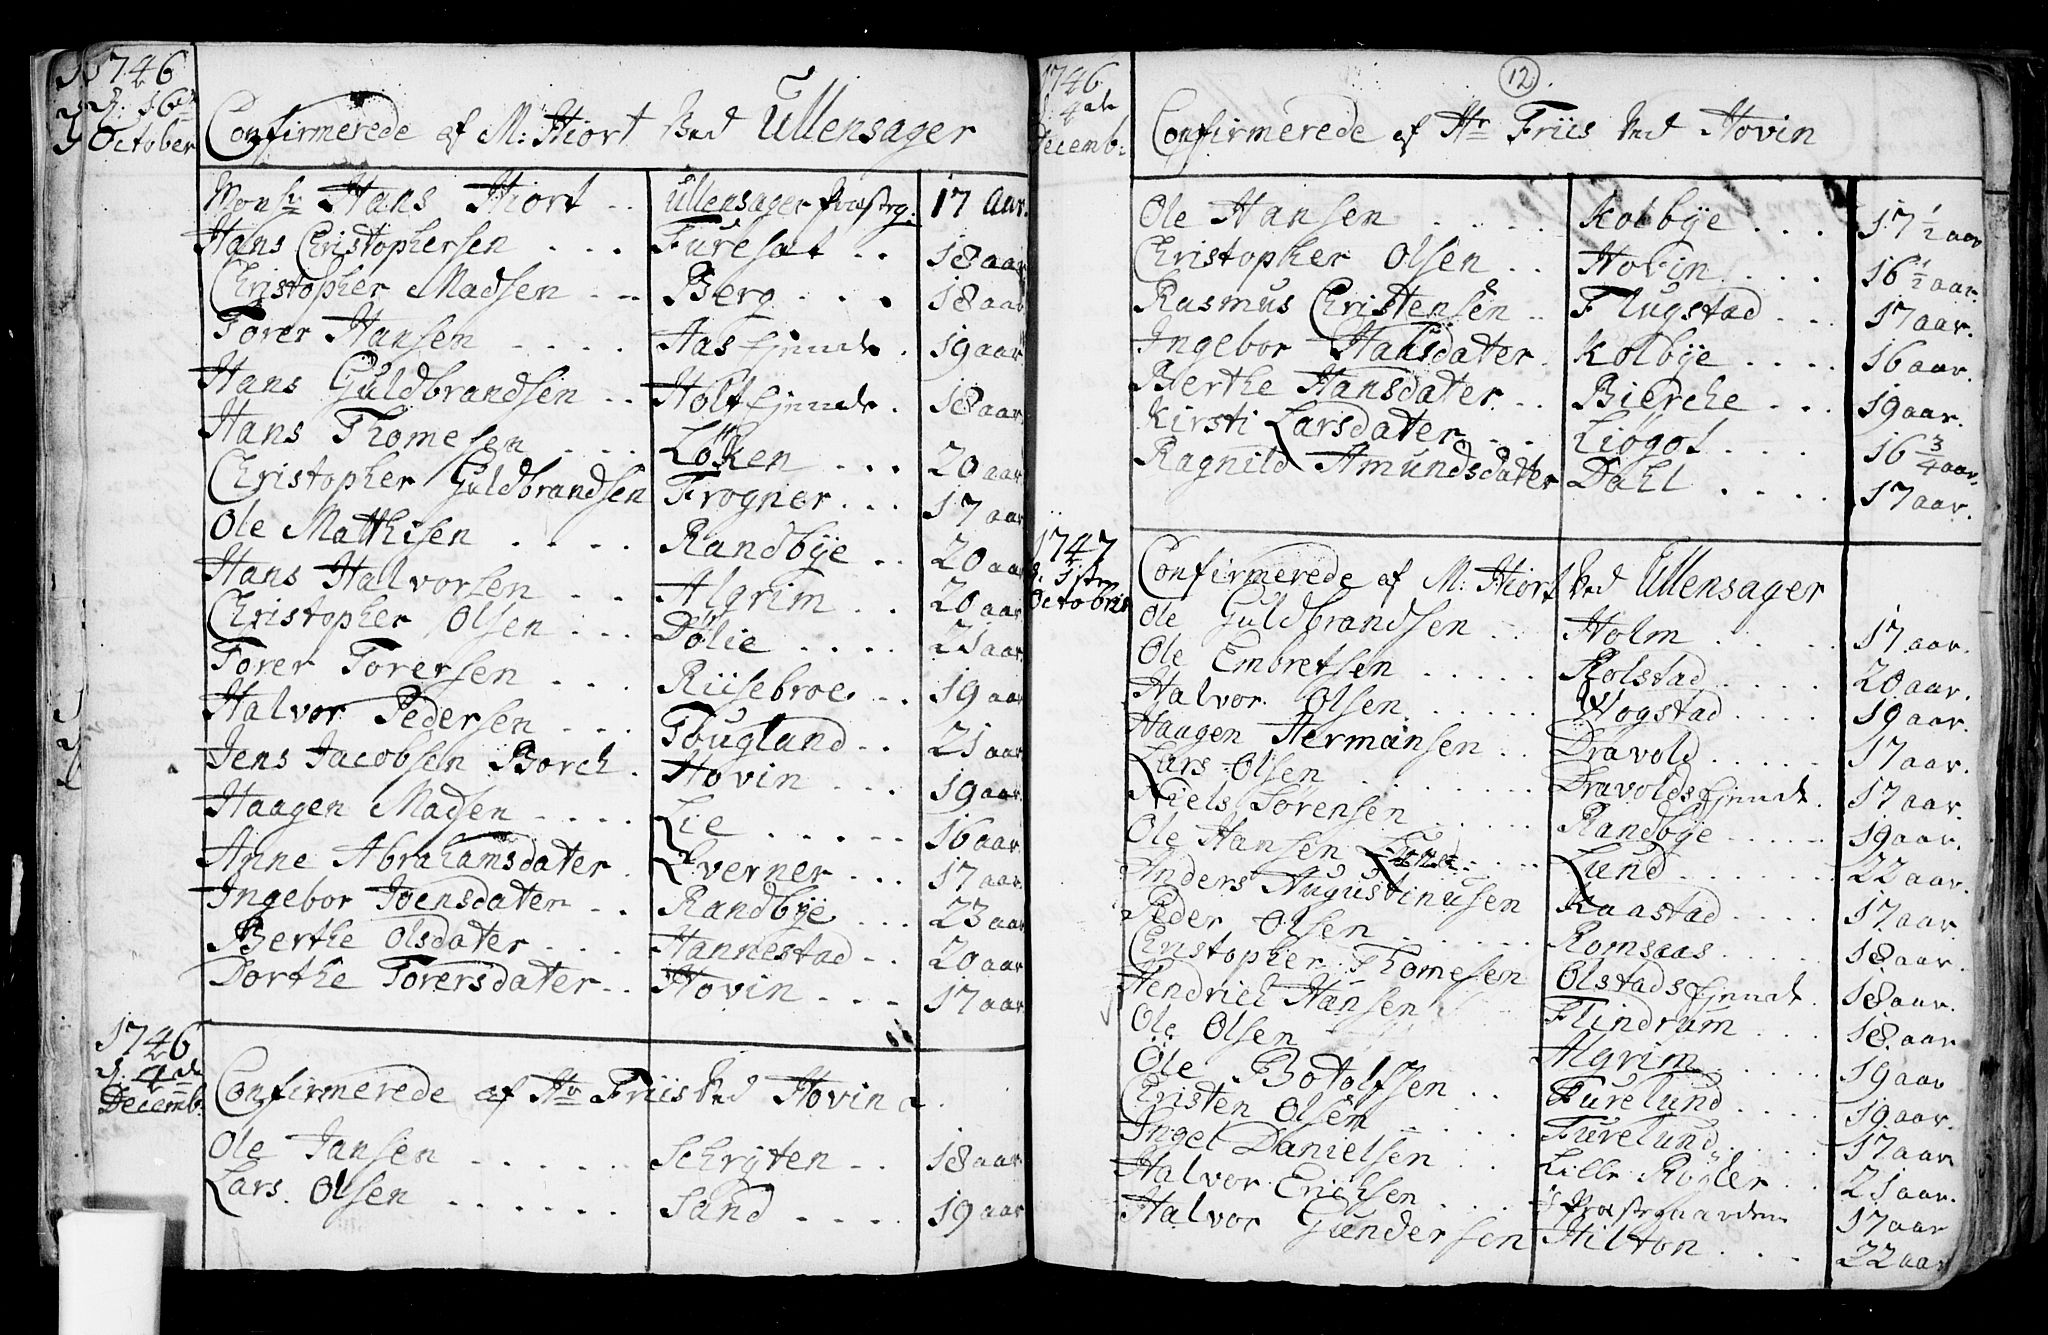 1746
d. 16de
October
Confirmerede af M: Hiort ved Ullensager
Monsr Hans Hiort .. Ullensager Præsteg: 17 aar.
Hans Christophersen ... Furesat .. 18 aar
Christopher Madsen .. Berg ... 18 aar
Torer Hansen .... Aas Ejende . 19 aar
Hans Guldbrandsen .. Holt Ejende . 18 aar
Hans Thomesen ... Løken ... 20 aar
Christopher Guldbrandsen Frogner ... 17 aar
Ole Mathisen .... Randbÿe .. 20 aar
Hans Halvorsen .. Algrim .. 20 aar
Christopher Olsen ... Dølie .... 21 aar
Torer Torersen ... Riisebroe .. 19 aar
Halvor Pedersen ... Fougland .. 21 aar
Jens Jacobsen Borch . Hovin ... 19 aar
Haagen Madsen .... Lie ..... 16 aar
Anne Abrahamsdater . Kverner ... 17 aar
Ingebor Joensdater .. Randbÿe ... 23 aar
Berthe Olsdater .... Hannestad .. 20 aar
Dorthe Torersdater .. Hovin ... 17 aar
1746
d. 4de
Decemb:
Confirmerede af Hr Friis ved Hovin
Ole Jansen ..... Schrÿten .. 18 aar
Lars Olsen ...... Sand .... 19 aar
12
1746
d. 4de
Decemb:
Confirmerede af Hr Friis ved Hovin
Ole Hansen .... Kolbÿe ... 17 1/2 aar
Christopher Olsen .. Hovin ... 16 1/2 aar.
Rasmus Christensen .. Flugstad ... 17 aar.
Ingebor Hansdater . Kolbÿe .... 16 aar.
Berthe Hansdater .. Bierche ... 19 aar.
Kirsti Larsdater .. Liogot .... 16 3/4 aar.
Ragnild Amundsdater Dahl .... 17 aar.
1747
d. 1sten
Octobris
Confirmerede af M: Hiort ved Ullensager
Ole Guldbrandsen .. Holm .... 17 aar.
Ole Embretsen ..... Rolstad .... 20 aar.
Halvor Olsen ..... Hogstad .... 19 aar.
Haagen Hermansen .. Dravold ..... 17 aar.
Lars Olsen ...... Dravolds Ejende . 17 aar.
Niels Sørensen ..... Randbÿe ..... 19 aar.
Ole Hansen ..... Lund ...... 22 aar.
Anders Augustinusen Kaastad .... 17 aar.
Peder Olsen ...... Romsaas ..... 18 aar.
Christopher Thomesen Olstads Ejende . 18 aar.
Hendrich Hansen .. Flindrum ... 18 aar
Ole Olsen ..... Algrim ..... 19 aar
Ole Botolfsen .. Furelund .... 19 aar.
Christen Olsen ..... Furelund .... 17 aar
Ingel Danielsen .. Lille Rogler .. 21 aar.
Halvor Erichsen ... Præstegaarden 17 aar
Halvor Gundersen Hilton ... 22 aar